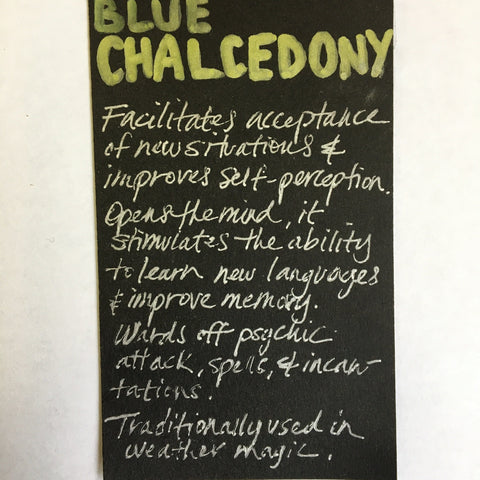 BLUE
CHALCEDONY
Facilitates acceptance
of new situations &
improves self-perception.
Opens the mind, it
stimulates the ability
to learn new languages
& improve memory.
Wards off psychic
attack, spells, & incan-
tations.
Traditionally used in
weather magic.